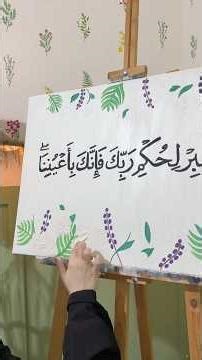 لِحُكْمِ رَبِّكَ فَإِنَّكَ بِأَعْيُنِنَا ۖ